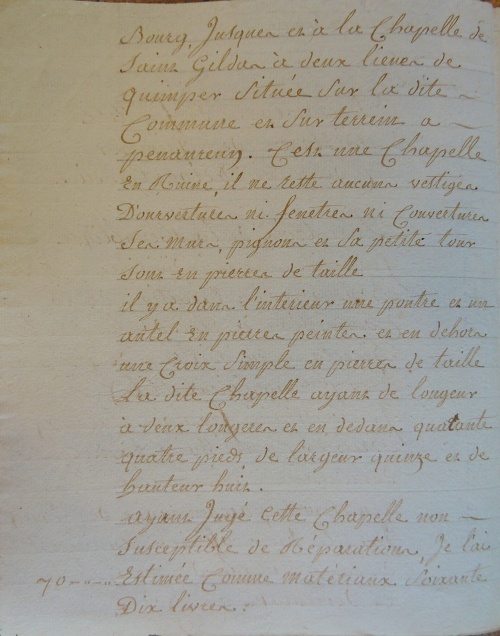 Bourg, Jusques et à la Chapelle de
Saint Gildas à deux lieues de
quimper située sur la dite
Commune et sur terrein a
penanreun. C'est une Chapelle
En Ruine, il ne reste aucuns vestiges
D'ouvertures ni fenetres ni Couvertures
Ses murs, pignons et sa petite tour
sont En pierres de taille
il y a dans l'interieur une poutre et un
autel En pierres peintes et en dehors
une Croix simple en pierres de taille
La dite Chapelle ayant de longeur
à deux longeres et en dedans quatante
quatre pieds de largeur quinze et de
hauteur huit.
ayant Jugé Cette Chapelle non
Susceptible de Réparations, Je l'ai
70 Estimée Comme matériaux Soixante
Dix livres :